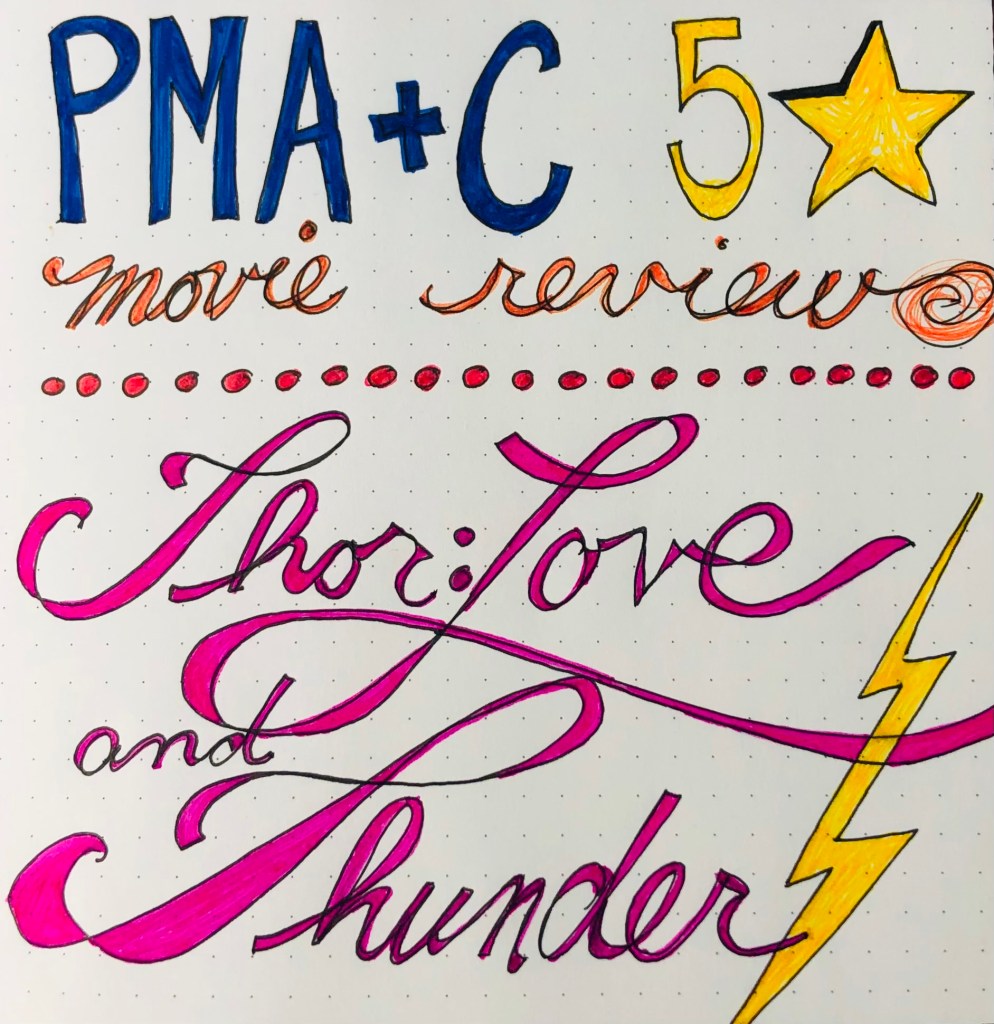 PMA+C 5★
movie review
Thor: Love
and
Thunder